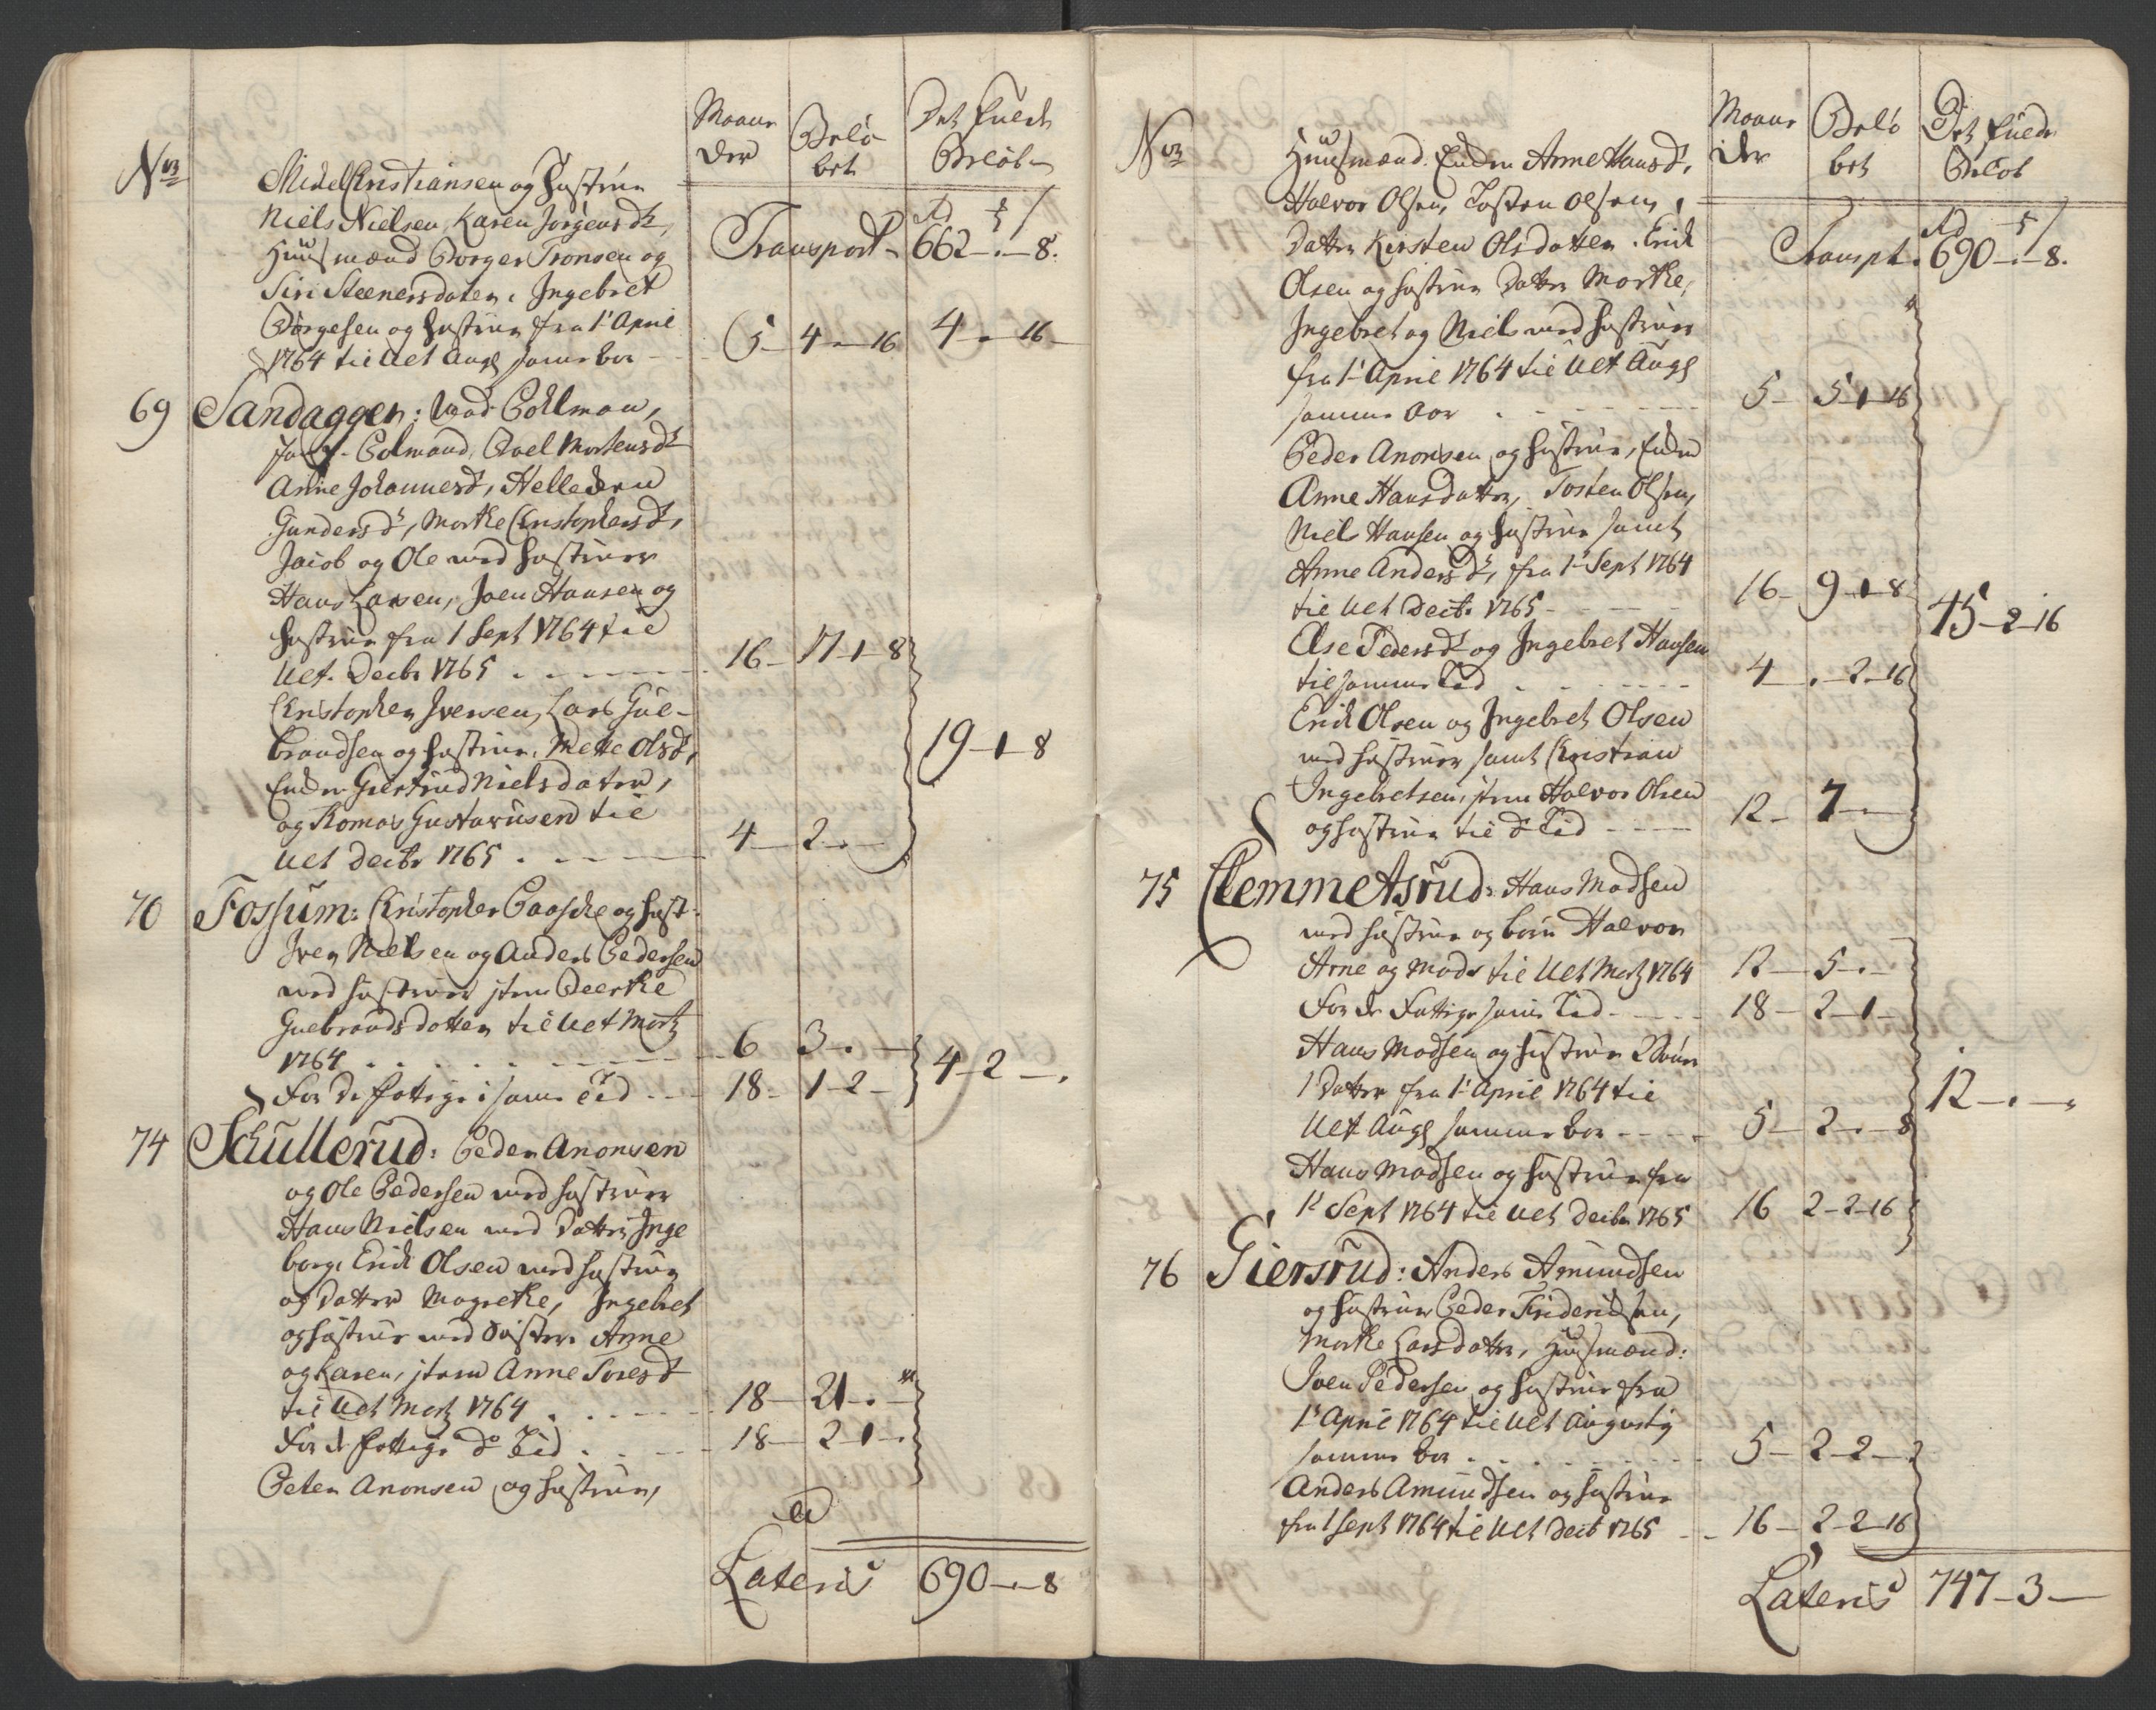 No
Maaneder
Beløbet
Det fulde Beløb
Michel Christiansen og Hustrue
Niels Nielsen, Karen Jørgensdr,
Huusmænd Børger Tronsen og
Siri Steenersdaten, Ingebret
Børgesen og Hustrue fra 1' April
1764 til Ult Augs samme Aar - 5 - 4 - . - 16 4 - . - 16
Transport - Rd 662 - . - 8.
69 Sandaggen: Mad Collman,
Jaf - Colmand, Boel Mortensdr
Anne Johannesd, Helle
Gundersd, Marthe Christophersd,
Jacob og Ole med Hustruer
Hans Larsen, Joen Hansen og
Hustrue fra 1 Sept 1764 til
Ult. Decbr 1765 . - 16 - 17 - 1 - 8
Christopher Iversen, Lars Gul-
brandsen og Hustrue, Mette Olsd,
Enken Giertrud Nielsdater, 19 - 1 - 8
og Thomas Gustavusen til
Ult Decbr 1765 . - 4 - 2 - . -
70 Fossum: Christopher Paaske og Hust.
Iver Nielsen og Anders Pedersen
med Hustruer item Beerthe
Gulbrandsdatter til Ult Martz
1764 . . . - 6 3 - . -
For de fattige i samme Tid - 18 - 1 - 2 - 4 - 2 - .
74 Schullerud: Peder Anonsen
og Ole Pedersen med Hustruer
Hans Nielsen med Datter Inge
borg, Erich Olsen med Hustrue
og Datter Magrethe, Ingebret
og Hustrue med Søster Anne
og Karen, item Anne Toresd
til Ult Martz 1764 . - 18 - 21 - . -
For de fattige do Tid . - 18 - 2 - 1 - .
Peter Anonsen og Hustrue,
Lateris 690 - . - 8
No
Maaneder
Beløbet
Det fulde Beløb
Huusmænd. Enken Anne Hansd,
Halvor Olsen, Tosten Olsen,
Datter Kirsten Olsdatter. Erich
Transpt. Rd 690 - . - 8.
Olsen og Hustrue Datter Marthe,
Ingebret og Niels med Hustruer
fra 1' April 1764 til Ult Augs
samme Aar . - 5 - 5 - 1 - 16
Peder Anonsen og Hustrue, Enken
Anne Hansdatter, Tosten Olsen,
Niels Hansen og Hustrue samt
Anne Andersd, fra 1' Sept 1764
til Ult Decbr 1765 - 16 - 9 - 1 - 8 45 - 2 - 16
Else Pedersd og Ingebret Hansen
til samme Tid - 4 - . - 2 - 16
Erich Olsen og Ingebret Olsen
med Hustruer samt Christian
Ingebretsen, item Halvor Olsen
og Hustrue til do Tid - 12 - 7 - . -
75 Clemmetsrud: Hans Madsen
med Hustrue og børn Halvor
Arne og Mads til Ult Martz 1764 12 - 5 - . -
For de Fattige samme Tid - 18 - 2 - 1 -
Hans Madsen og Hustrue 2 Børn
1 Datter fra 1' April 1764 til 12 - . - .
Ult Augs samme Aar - 5 - 2 - . - 8
Hans Madsen og Hustrue fra
1' Sept 1764 til Ult Decbr 1765 16 2 - 2 - 16
76 Giersrud: Anders Amundsen
og Hustrue Peder Friderichsen,
Marthe Larsdatter, Huusmænd:
Joen Pedersen og Hustrue fra
1' April 1764 til Ult Augusty
samme Aar . - 5 - 2 - 2 - .
Anders Amundsen og Hustrue
fra 1 Sept 1764 til Ult Decb 1765 - 16 - 2 - 2 - 16
Lateris 747 - 3 -